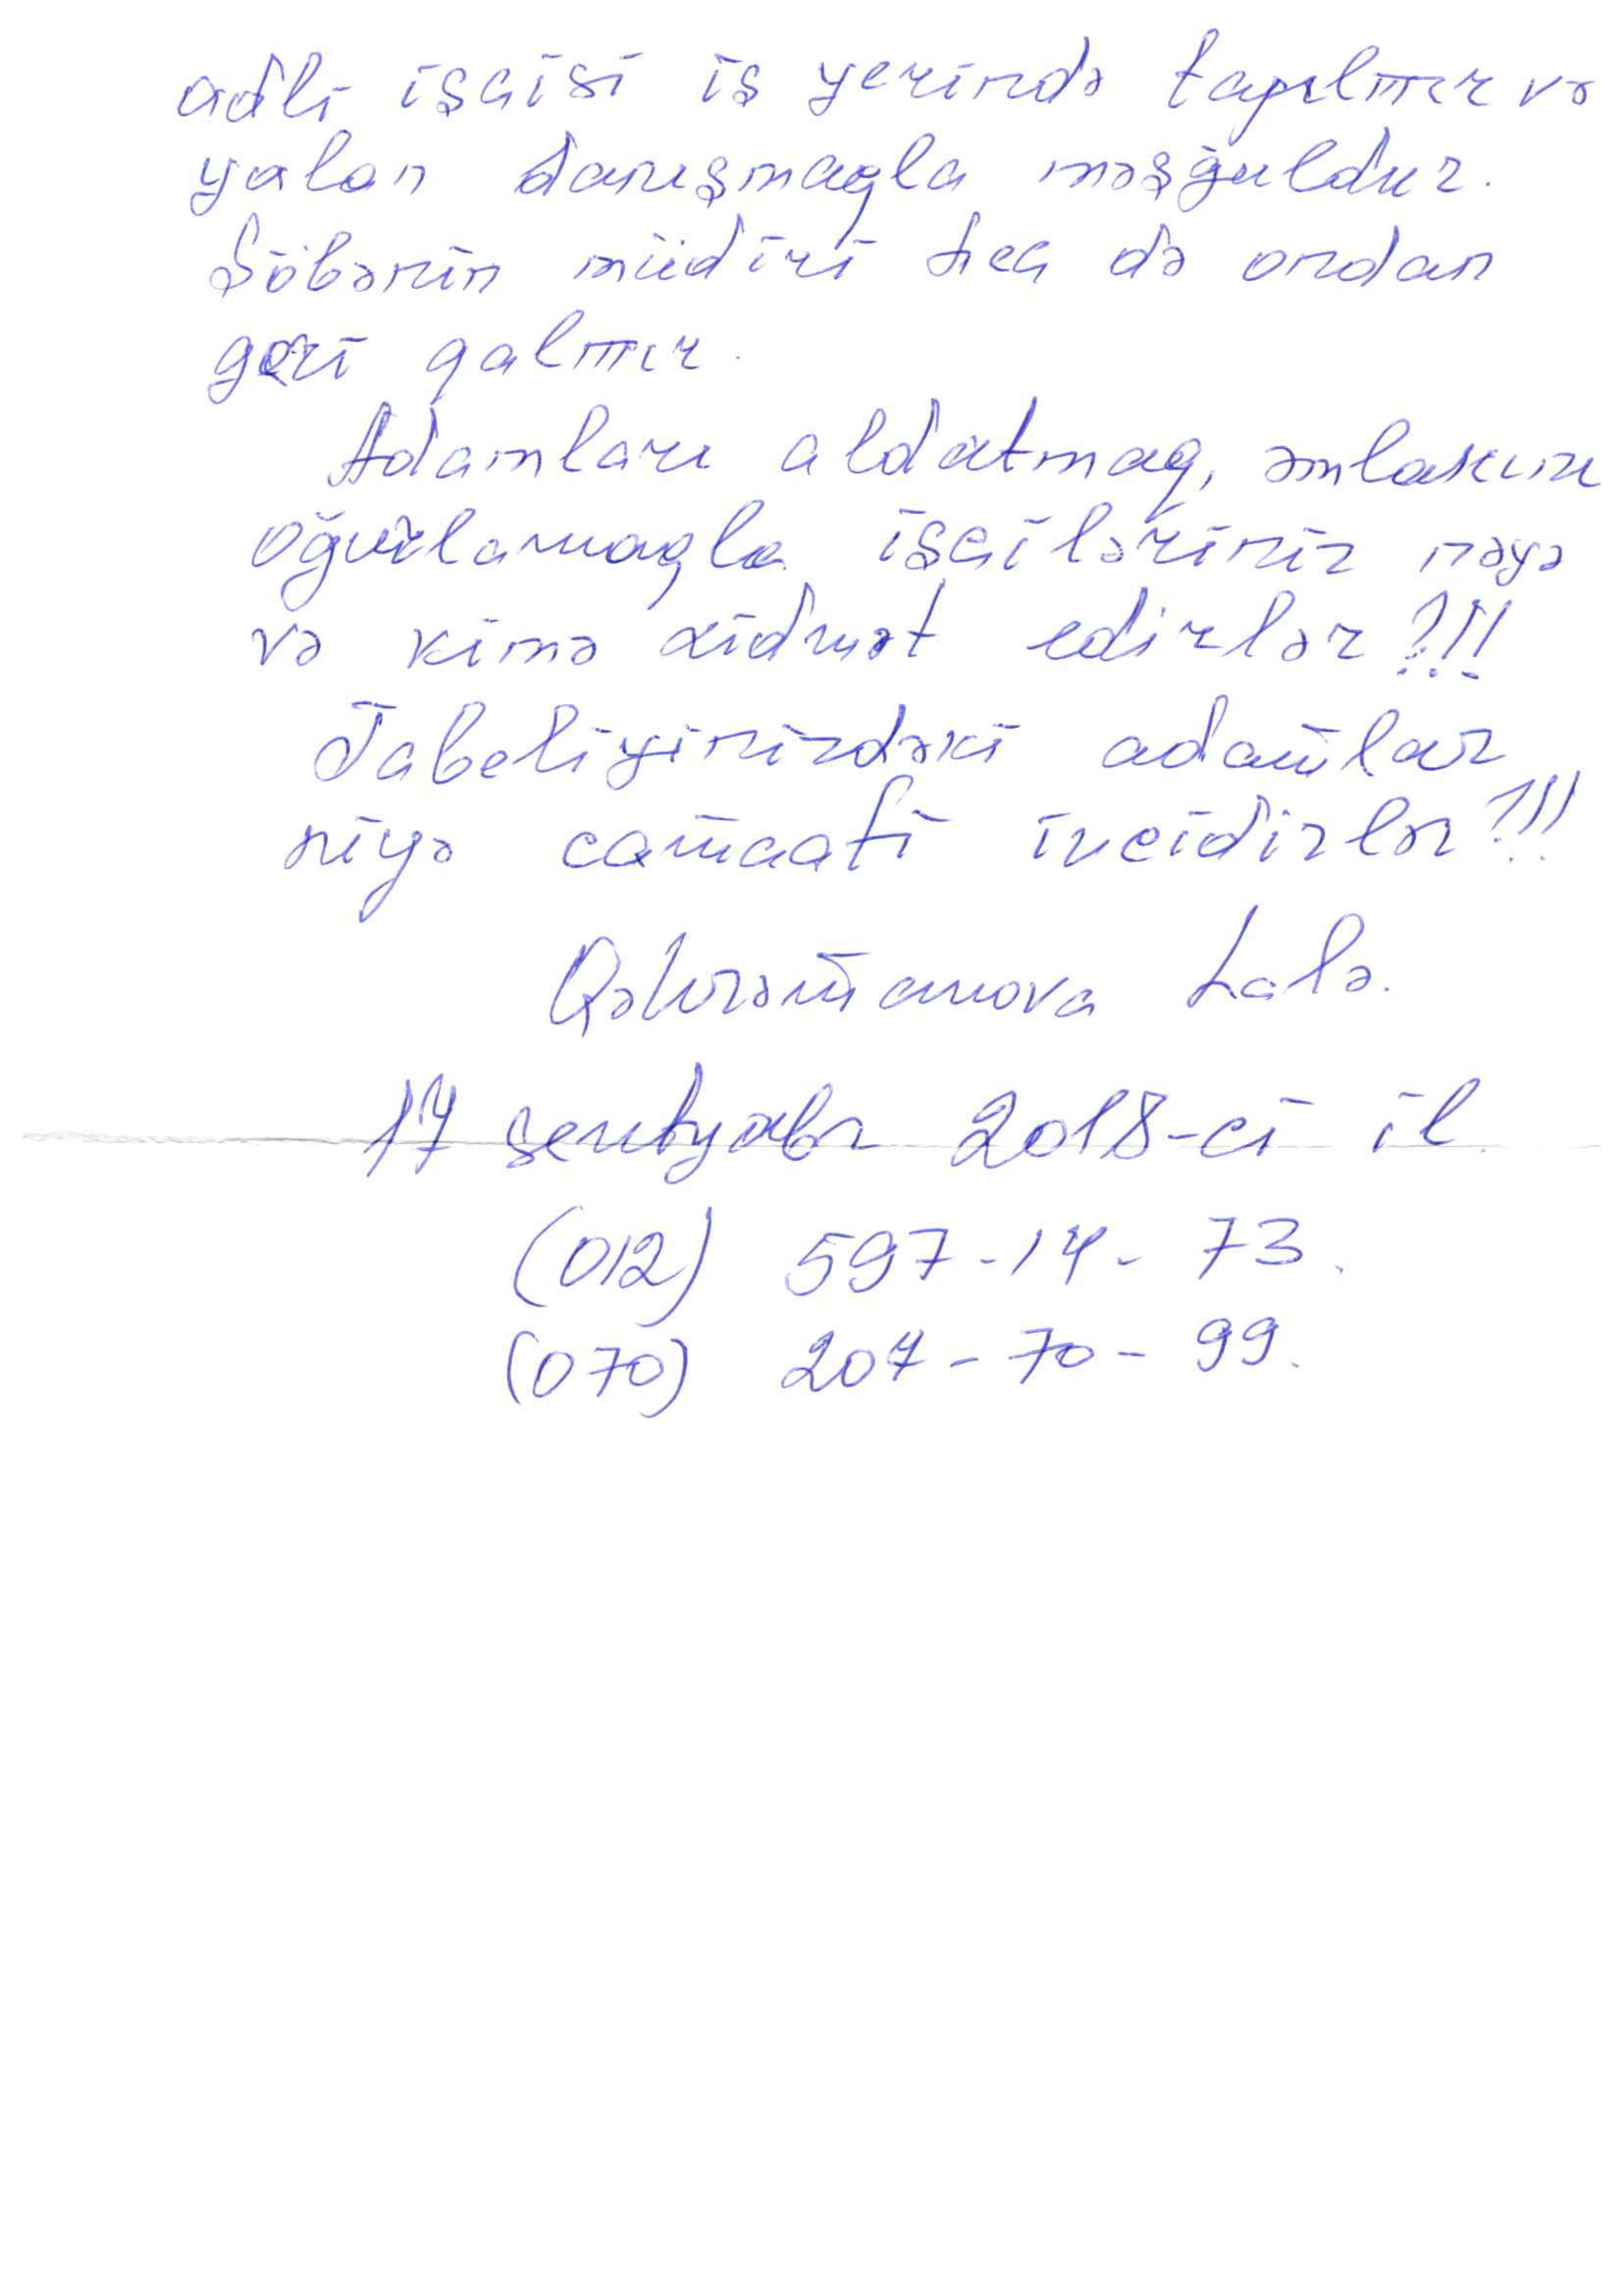 adlı işçisi iş yerində tapılmır və
yalan danışmaqla məşğuldur.
Şöbənin müdiri heç də ondan
geri qalmır.
Adamları aldatmaq, əmlakını
oğurlamaqla işçiləriniz nəyə
və kimə xidmət edirlər?!!!
Tabeliyinizdəki adamlar
niyə camaatı incidirlər?!!!
Qəhrəmanova Lalə.
17 sentyabr 2018-ci il.
(012) 597-14-73.
(070) 207-70-99.